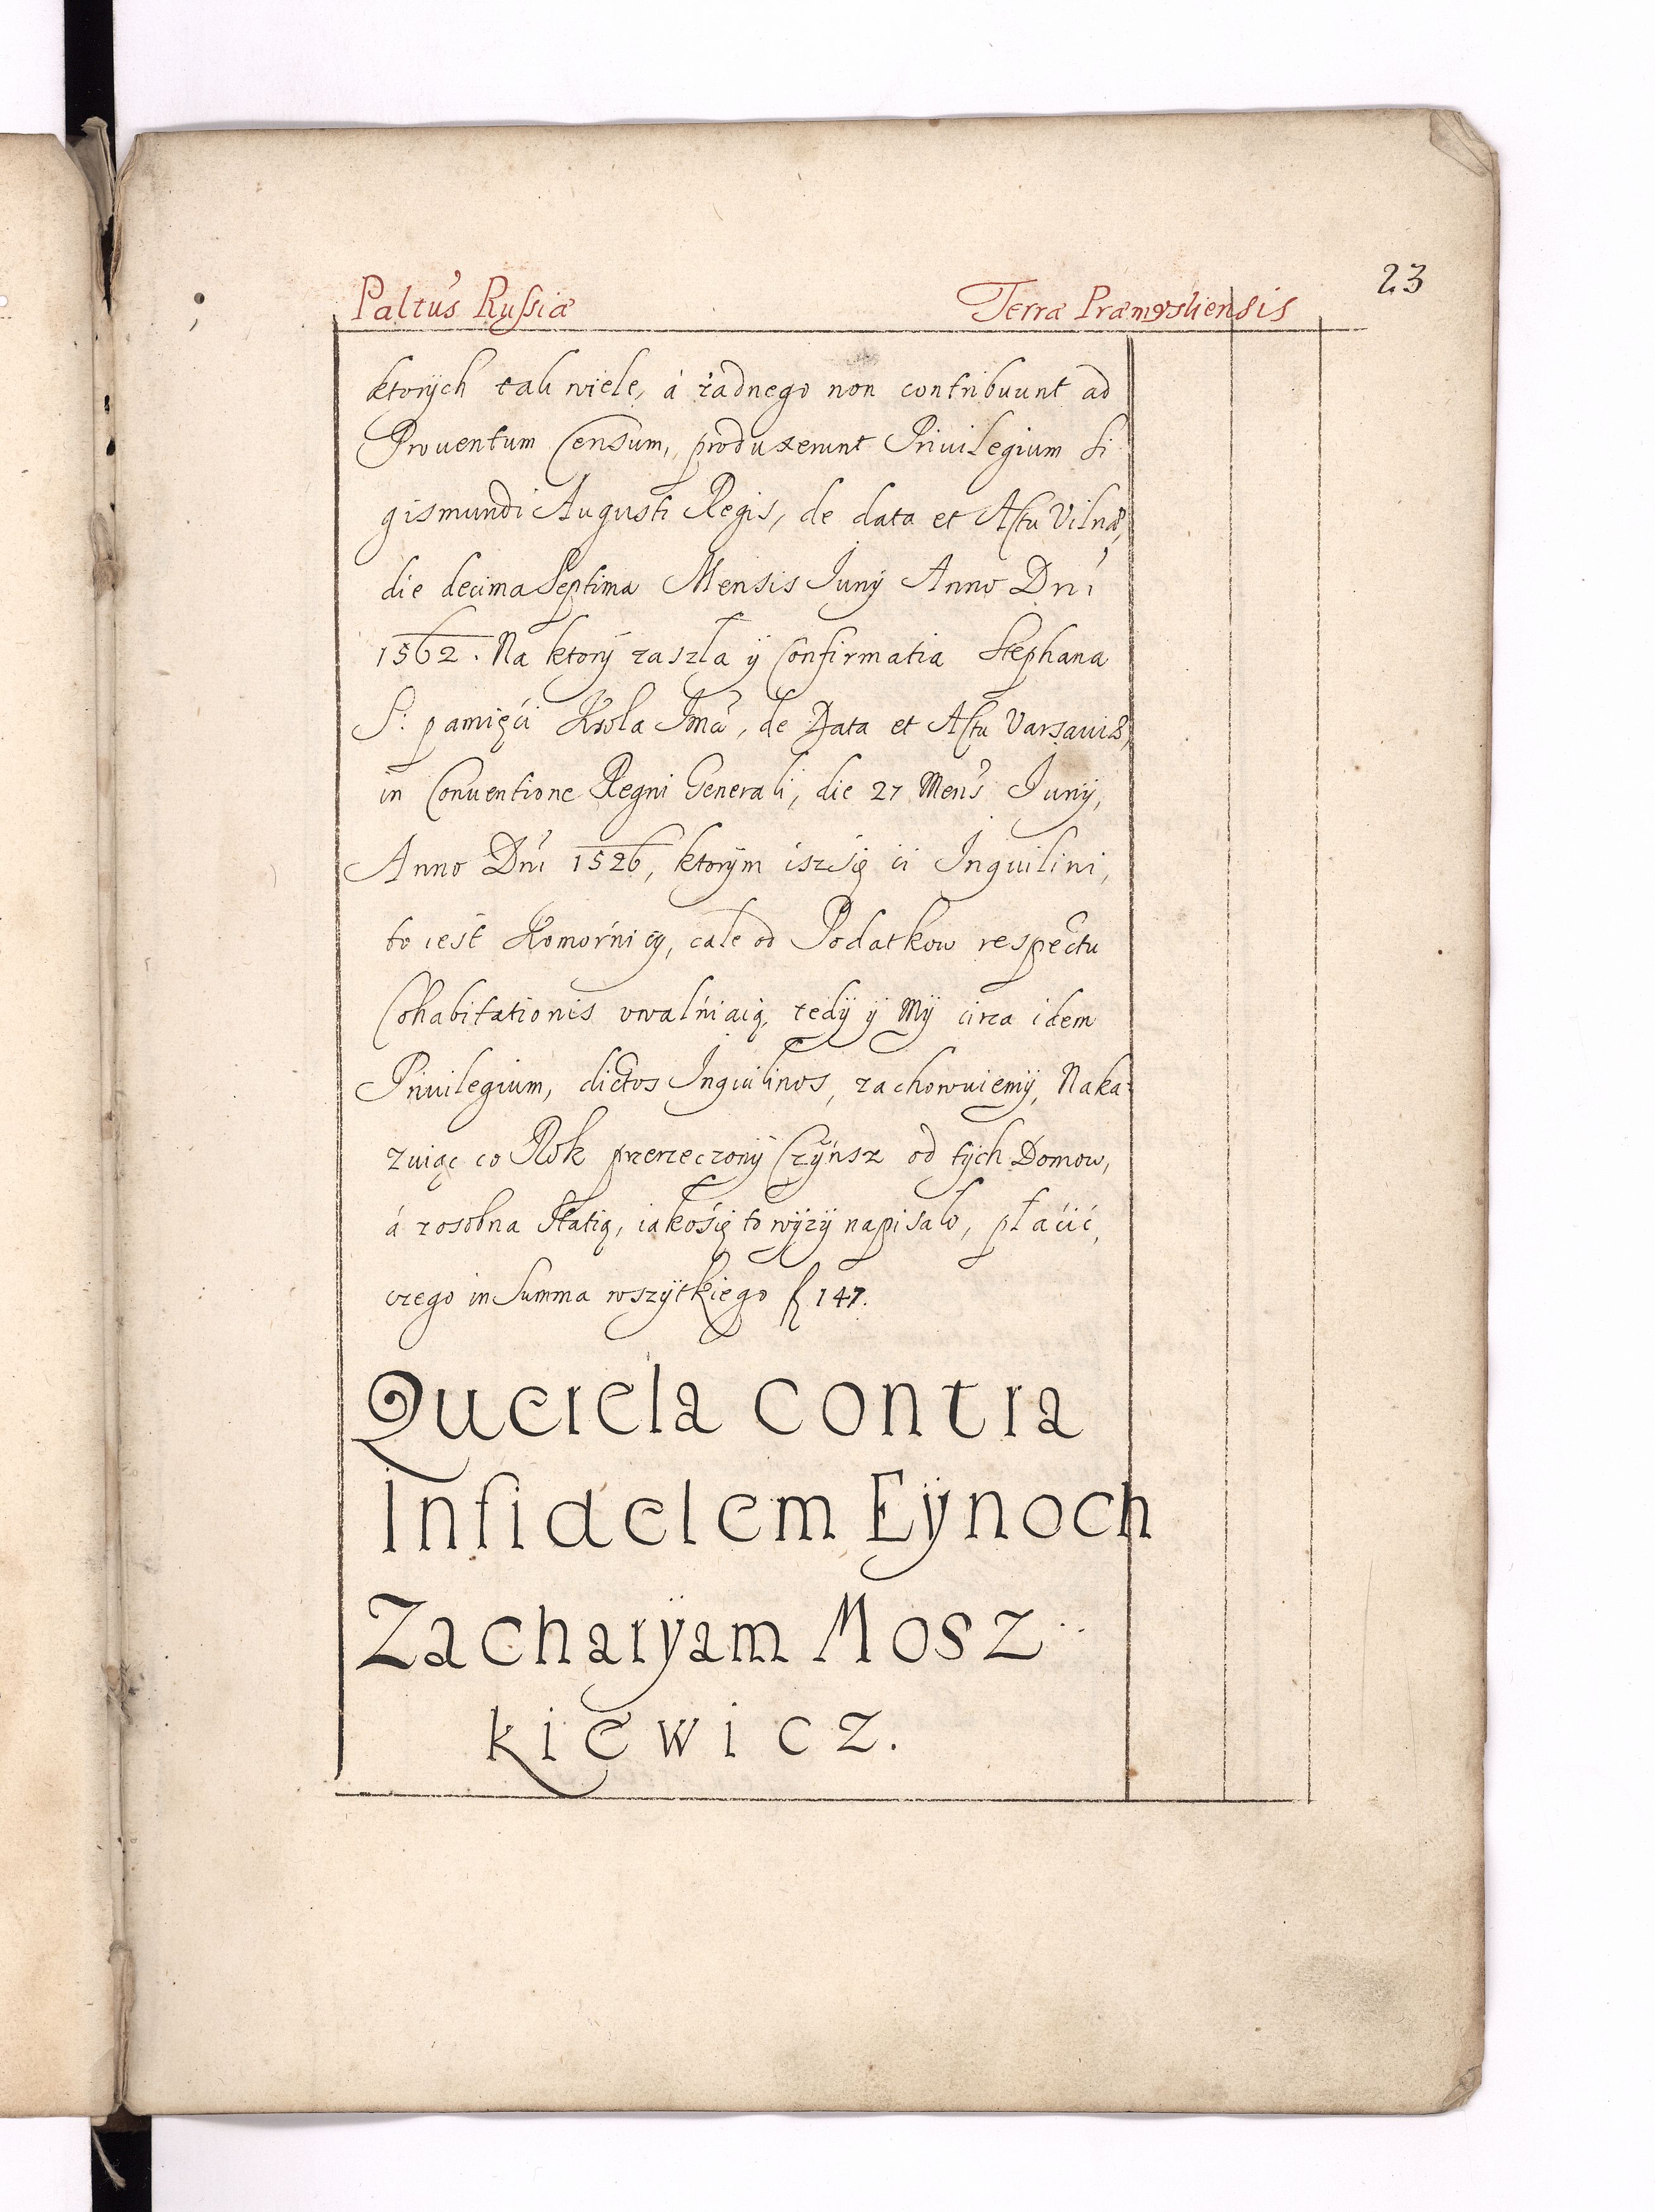 Paltus Russiæ Terræ Præmysliensis 23
ktorÿch tali wiele, á żadnego non contribuunt ad
Prouentum Censum, produxerunt Priuilegium Si
gismundi Augusti Regis, de data et Actu Vilnæ,
die decima Septima Mensis Iunÿ Anno Dni
1562. Na ktorÿ zaszła ÿ Confirmatia Stephana
S: pamięći Krola Imci, de Data et Actu Varsauiæ,
in Conuentione Regni Generali, die 27 Mens Iunÿ,
Anno Dni 1526, ktorÿm iszsię ći Inquilini,
to iest Komorńicy, cale od Podatkow respectu
Cohabitationis vwalńiaią, tedÿ ÿ Mÿ circa idem
Priuilegium, dictos Inquilinos, zachowuiemÿ, Naka
zuiąc co Rok przerzeczonÿ Czÿnsz od tÿch Domow,
á zosobna Statią, iakośię to wÿżÿ napisało, płaćić,
czego in Summa wszÿtkiego f 147.
Querela contra
Infidelem Eÿnoch
Zacharÿam Mosz
kiewicz.